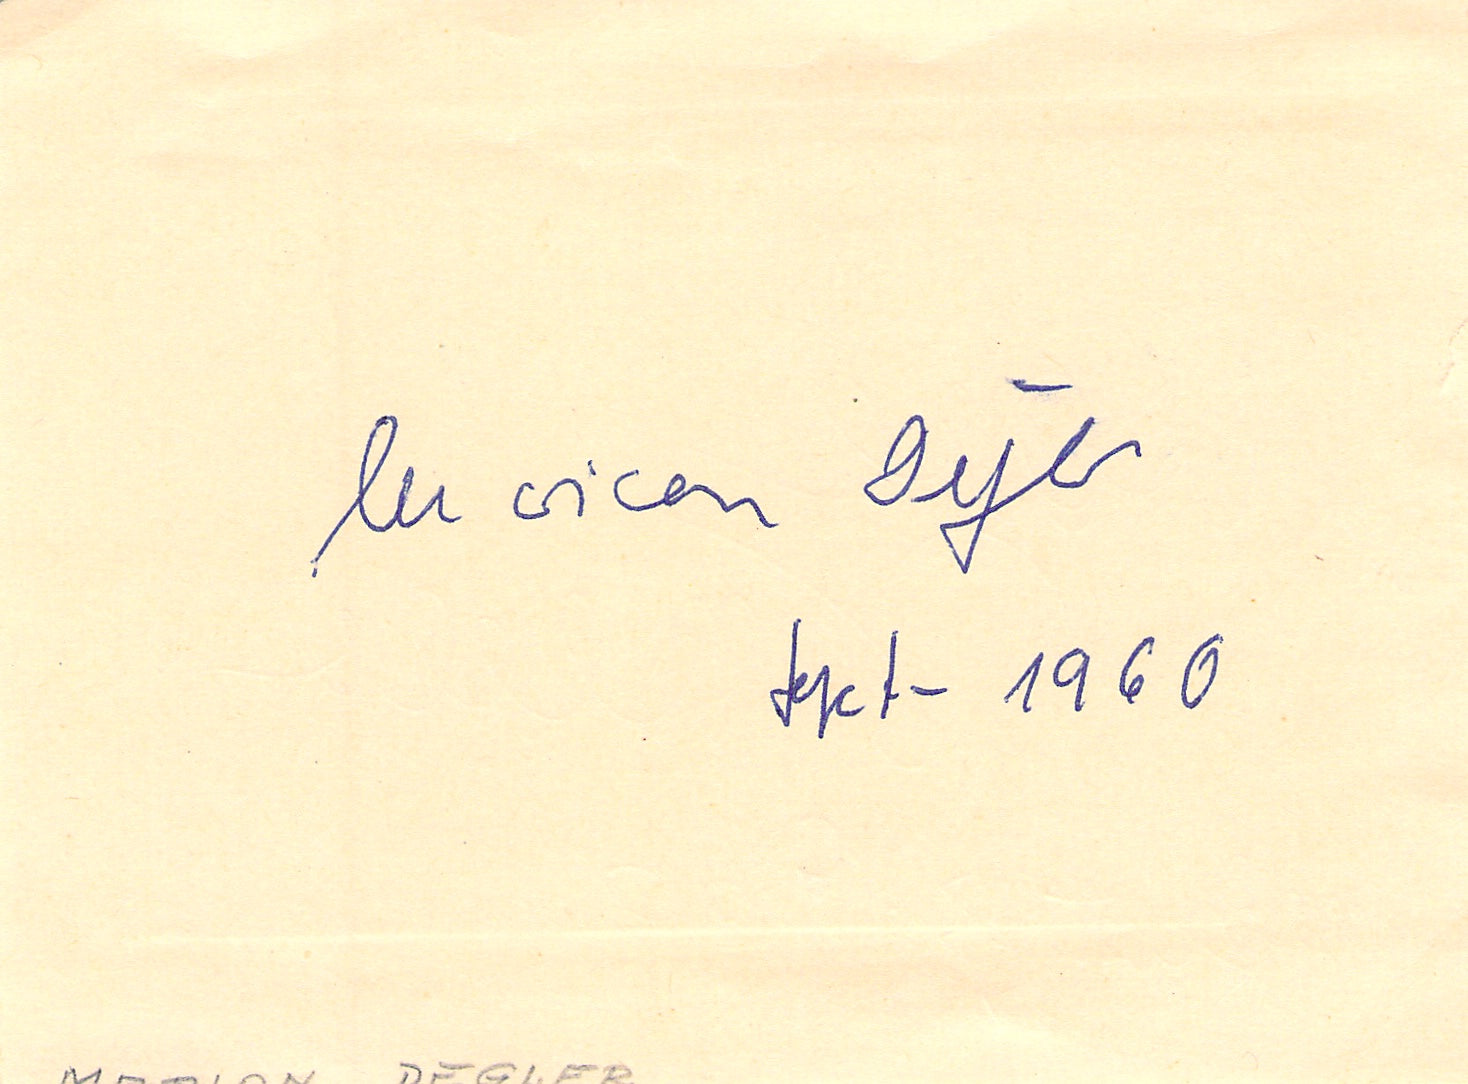 Marion Degler
Sept- 1960
MARION DEGLER